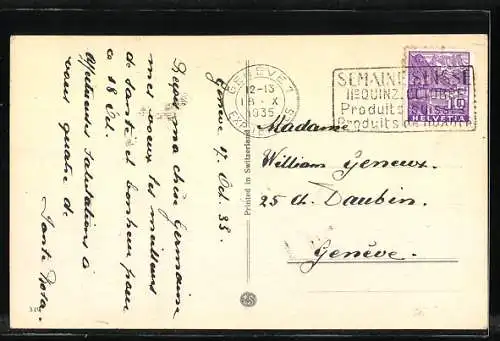 Genève 17. Oct. 35.
Reçois ma chère Germaine
mes voeux les meilleurs
de santé et bonheur pour
ce 18 Oct.
Affectueuses Salutations à
vous quatre de
Tante Rosa.
GENEVE 1
12-13
18. X
1935
EXP. LETTRES
SEMAINE SUISSE
IIe QUINZ. OCTOBRE
Produits suisses
Produits de
HELVETIA
10
Madame
William Geneux
25 ch. Daubin.
Genève.
Printed in Switzerland